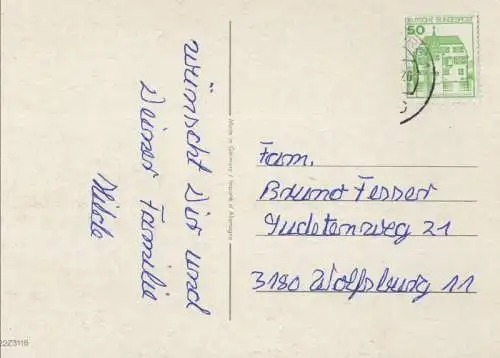 wünscht Dir und
Deiner Familie
DEUTSCHE BUNDESPOST
50
Made in Germany / Imprimé d'Allemagne
Fam.
Bruno Fesser
Sudetenweg 21
3180 Wolfsburg 11